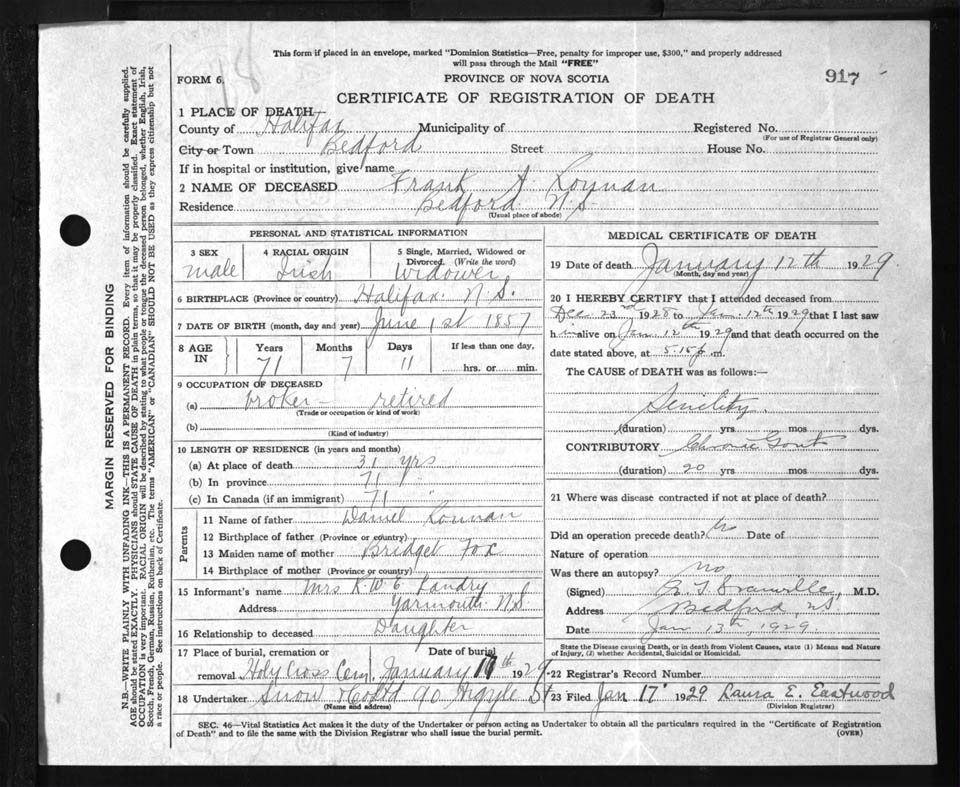 This form if placed in an envelope, marked "Dominion Statistics—Free, penalty for improper use, $300," and properly addressed
will pass through the Mail "FREE"
FORM 6.
PROVINCE OF NOVA SCOTIA
917
CERTIFICATE OF REGISTRATION OF DEATH
1 PLACE OF DEATH—
County of Halifax Municipality of Registered No.
(For use of Registrar General only)
City or Town Bedford Street House No.
If in hospital or institution, give name
2 NAME OF DECEASED Frank
Residence Bedford N.S.
(Usual place of abode)
PERSONAL AND STATISTICAL INFORMATION
3 SEX 4 RACIAL ORIGIN 5 Single, Married, Widowed or
Divorced. (Write the word)
male Irish Widower
6 BIRTHPLACE (Province or country) Halifax. N.S.
7 DATE OF BIRTH (month, day and year) June 1st 1857
8 AGE IN Years Months Days If less than one day,
71 7 11 hrs. or min.
9 OCCUPATION OF DECEASED
(a) broker — retired
(Trade or occupation or kind of work)
(b)
(Kind of industry)
10 LENGTH OF RESIDENCE (in years and months)
(a) At place of death 31 yrs
(b) In province 71 "
(c) In Canada (if an immigrant) 71 "
Parents
11 Name of father Daniel
12 Birthplace of father (Province or country)
13 Maiden name of mother Bridget Fox
14 Birthplace of mother (Province or country)
15 Informant's name Mrs Landry
Address Yarmouth N.S
16 Relationship to deceased Daughter
17 Place of burial, cremation or Date of burial
removal Holy Cross Cem. January th 1929
18 Undertaker Snow 90 Argyle St
(Name and address)
MEDICAL CERTIFICATE OF DEATH
19 Date of death January 12th 1929
(Month, day and year)
20 I HEREBY CERTIFY that I attended deceased from
Dec. 23rd 1928 to Jan. 12th 1929 that I last saw
h im alive on Jan 12th 1929 and that death occurred on the
date stated above, at 5.15 p. m.
The CAUSE of DEATH was as follows:—
Senility.
(duration) yrs. mos. dys.
CONTRIBUTORY Chronic Gout
(duration) 20 yrs mos. dys.
21 Where was disease contracted if not at place of death?
Did an operation precede death? No Date of
Nature of operation
Was there an autopsy? No
(Signed) M.D.
Address Bedford, NS
Date Jan 13th, 1929.
State the Disease causing Death, or in death from Violent Causes, state (1) Means and Nature
of Injury, (2) whether Accidental, Suicidal or Homicidal.
22 Registrar's Record Number
23 Filed Jan 17 1929 Laura E. Eastwood
(Division Registrar)
SEC. 46—Vital Statistics Act makes it the duty of the Undertaker or person acting as Undertaker to obtain all the particulars required in the "Certificate of Registration
of Death" and to file the same with the Division Registrar who shall issue the burial permit.
(OVER)
MARGIN RESERVED FOR BINDING
N.B.—WRITE PLAINLY WITH UNFADING INK—THIS IS A PERMANENT RECORD. Every item of information should be carefully supplied.
AGE should be stated EXACTLY. PHYSICIANS should STATE CAUSE OF DEATH in plain terms, so that it may be properly classified. Exact statement of
OCCUPATION is very important. RACIAL ORIGIN will be described by stating to what people or tongue the deceased person belonged, whether English, Irish,
Scotch, French, German, Russian, Ruthenian, etc. The terms "AMERICAN" or "CANADIAN" SHOULD NOT BE USED as they express citizenship but not
a race or people. See instructions on back of Certificate.